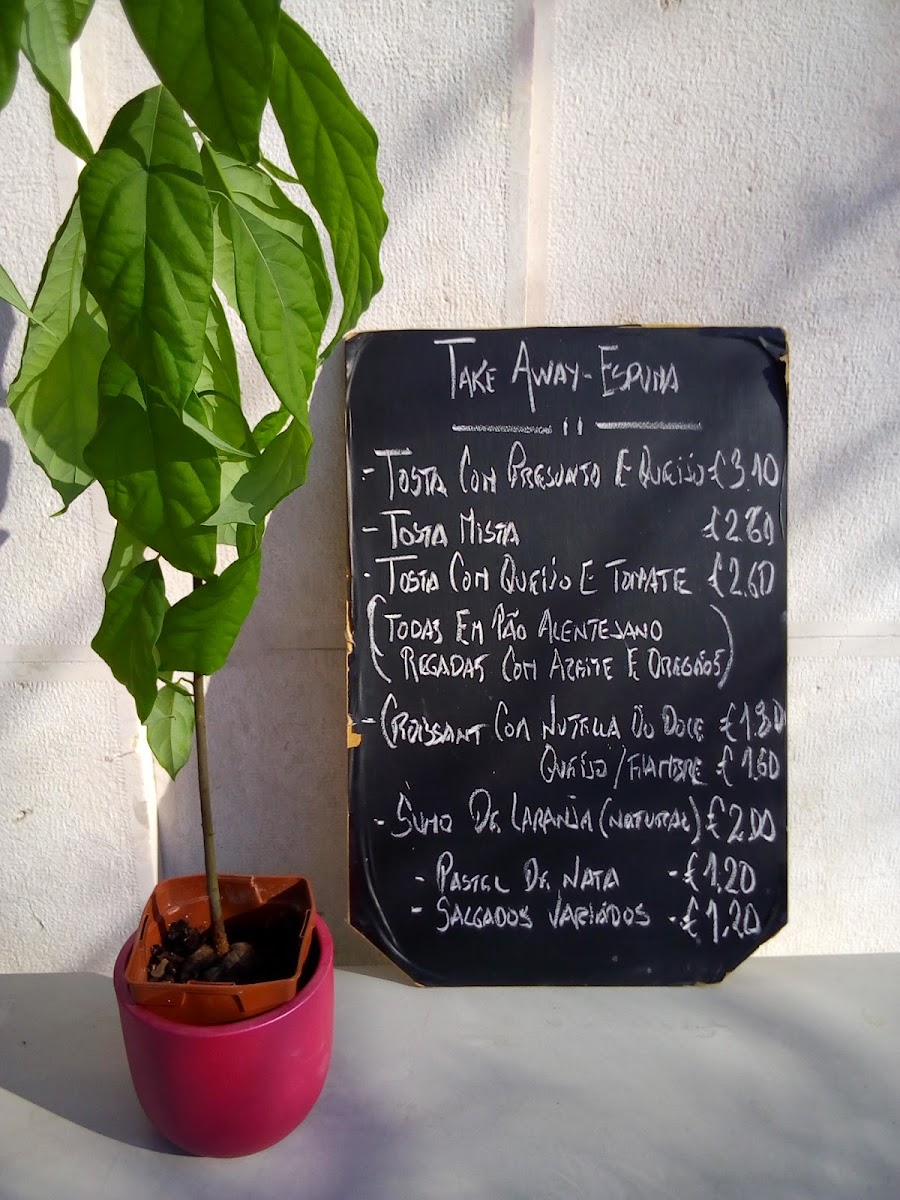 TAKE AWAY - ESPUMA
- TOSTA COM PRESUNTO E QUEIJO €3.10
- TOSTA MISTA €2.80
- TOSTA COM QUEIJO E TOMATE €2.60
(TODAS EM PÃO ALENTEJANO
REGADAS COM AZEITE E OREGÃOS)
- CROISSANT COM NUTELLA OU DOCE €1.80
QUEIJO/FIAMBRE €1.60
- SUMO DE LARANJA (NATURAL) €2.00
- PASTEL DE NATA - €1.20
- SALGADOS VARIADOS - €1,20